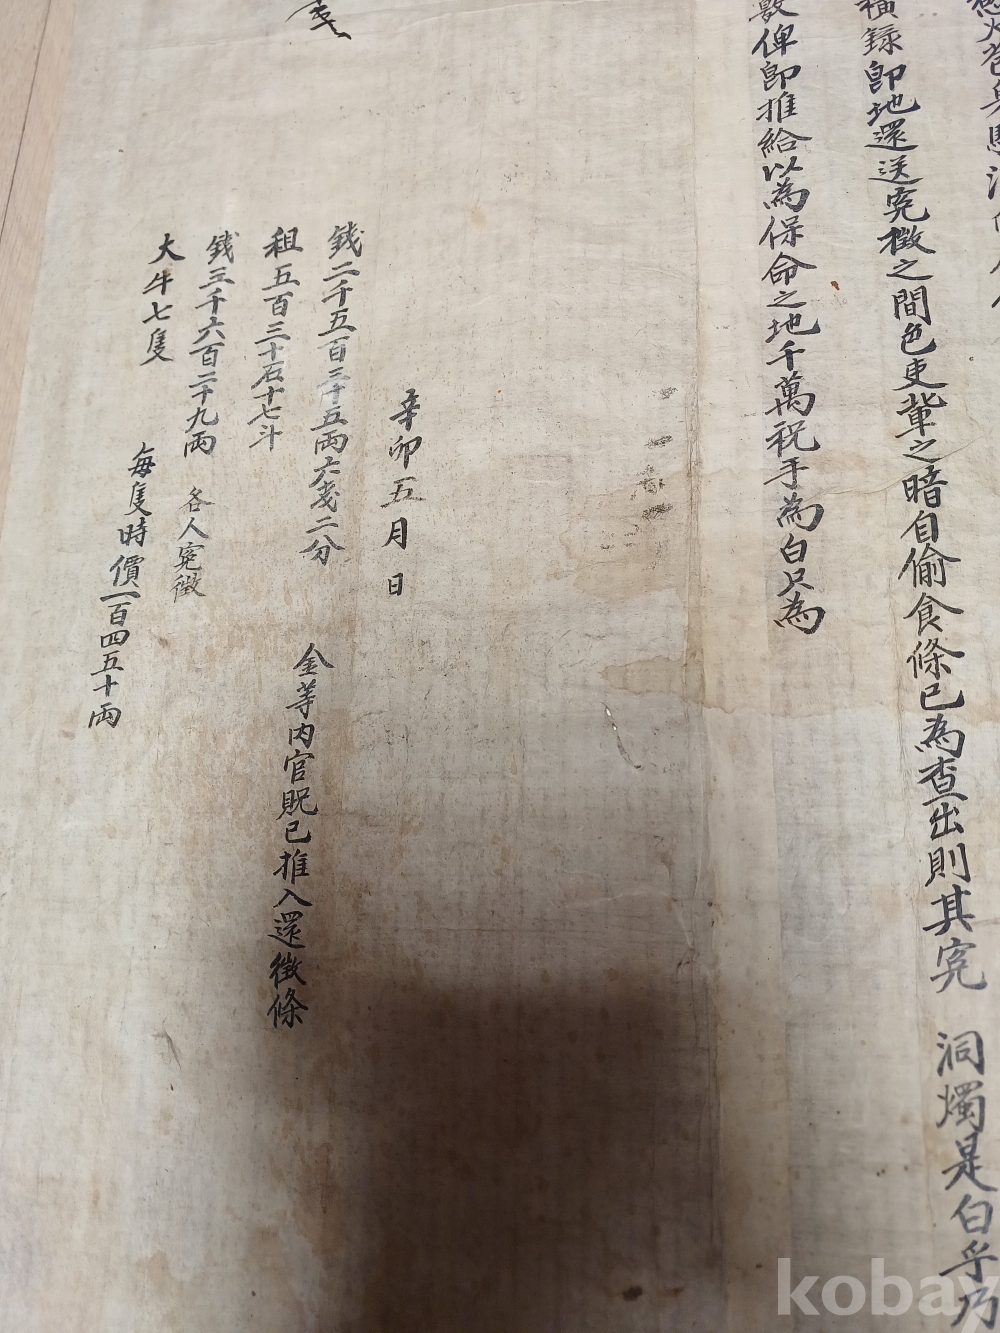 橫錄卽地還送寃徵之間色吏輩之暗自偷食條已為查出則其寃 洞燭是白乎乃
數俾卽推給以為保命之地千萬祝手為白只為
辛卯五月 日
錢二千五百三十五兩六戔二分
金等內官貺已推入還徵條
租五百三十石十七斗
錢三千六百二十九兩 各人寃徵
大牛七隻 每隻時價一百四五十兩
kobay